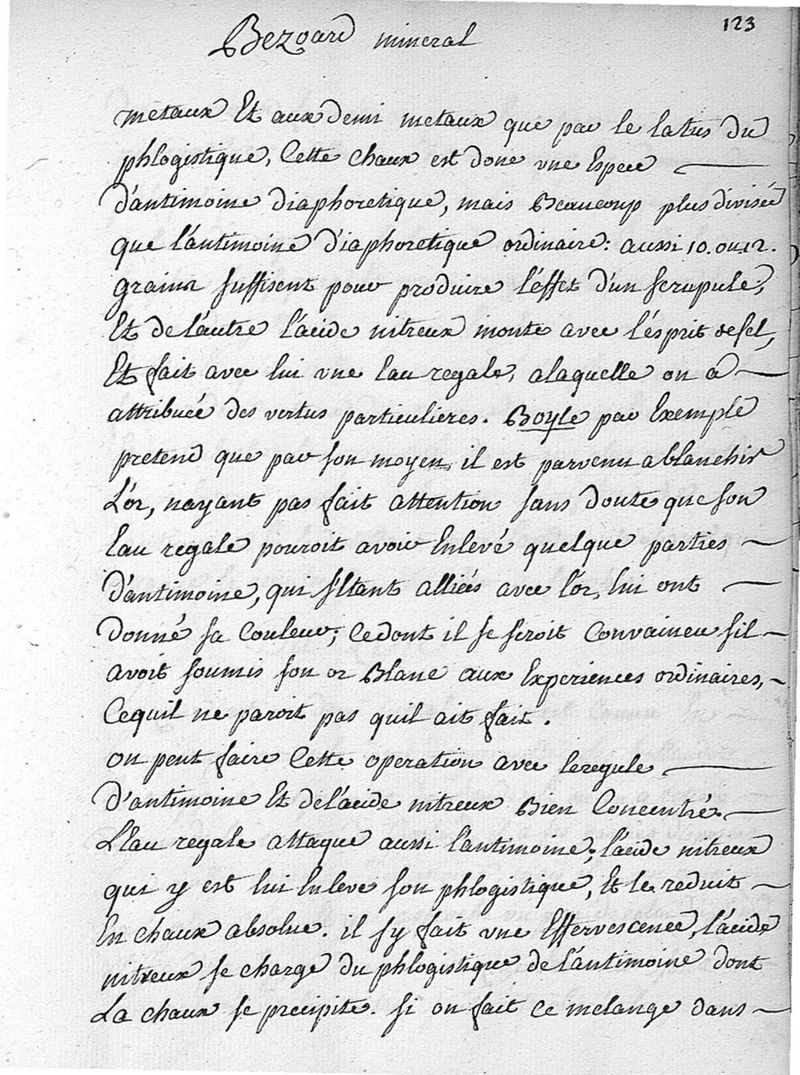 123
Bezoard mineral
metaux Et aux demi metaux que par le latus du
phlogistique, Cette chaux est donc vne Espece
d'antimoine diaphoretique, mais Beaucoup plus divisée
que l'antimoine d'iaphoretique ordinaire: aussi 10. ou 12.
grains suffisent pour produire l'éffet d'un scrupule,
Et de l'autre l'acide nitreux monte avec l'ésprit de sel,
Et fait avec lui vne Eau regale, alaquelle on a
attribuée des vertus particulieres. Boyle par Exemple
pretend que par son moyen, il est parvenu a blanchir
L'or, nayant pas fait attention sans doute que son
Eau regale pouroit avoir Enlevé quelque parties
D'antimoine, qui s'Etant alliées avec l'or, lui ont
donné sa Couleur; Cedont il se seroit Convaincu sil
avoit soumis son or Blanc aux Experiences ordinaires,
Cequil ne paroit pas quil ait fait.
on peut faire Cette operation avec leregule
D'antimoine Et de l'acide nitreux Bien Concentré.
L'Eau regale attaque aussi l'antimoine, l'acide nitreux
qui y est lui Enleve son phlogistique, Et le reduit
En chaux absolue. il s'y fait vne Effervescence, l'acide
nitreux se charge du phlogistique de l'antimoine dont
La chaux se precipite. si on fait ce melange dans